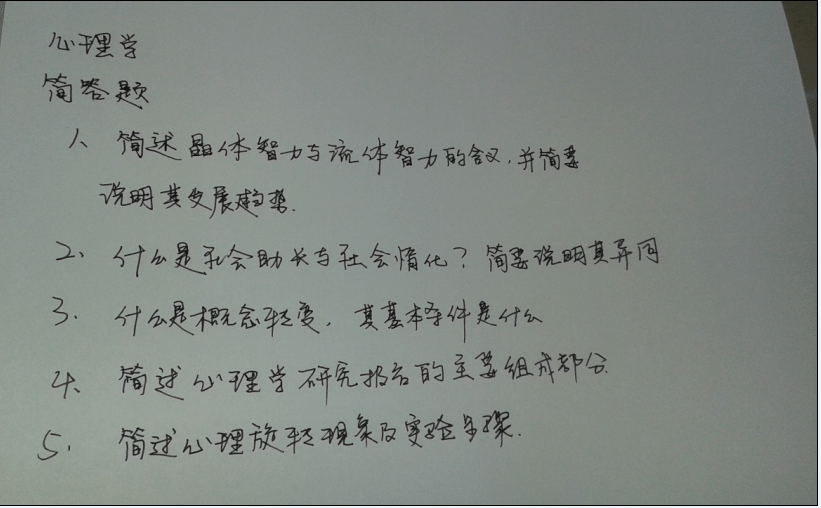 心理学
简答题
1、简述晶体智力与流体智力的含义,并简要
说明其发展趋势.
2、什么是社会助长与社会惰化?简要说明其异同
3、什么是概念转变,其基本条件是什么
4、简述心理学研究报告的主要组成部分.
5、简述心理旋转现象及实验步骤.